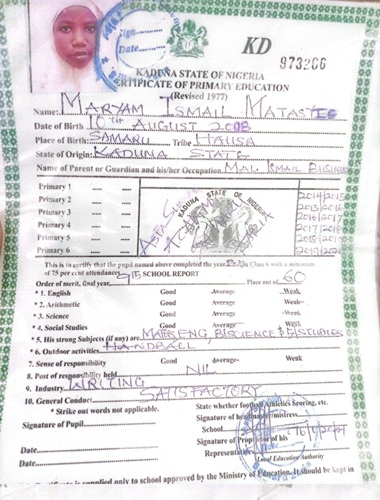 Sign
Date
KD
973206
KADUNA STATE OF NIGERIA
CERTIFICATE OF PRIMARY EDUCATION
(Revised 1977)
Name: MARYAM ISMAIL
Date of Birth 10TH AUGUST 2008
Place of Birth: SAMARU Tribe HAUSA
State of Origin: KADUNA STATE
Name of Parent or Guardian and his/her Occupation MAL. ISMAIL
Primary 1 2014/2015
Primary 2 2015/2016
Primary 3 2016/2017
Primary 4 2017/2018
Primary 5 2018/2019
Primary 6
KADUNA STATE OF NIGERIA
This is to certify that the pupil named above completed the year in Class 6 with a minimum
of 75 per cent attendance SCHOOL REPORT
Order of merit, final year Place out of 60
* 1. English Good Average Weak
* 2. Arithmetic Good Average Weak
* 3. Science Good Average Weak
* 4. Social Studies Good Average Weak
* 5. His strong Subjects (if any) are
* 6. Outdoor activities HANDBALL
7. Sense of responsibility Good Average Weak
8. Post of responsibility held NIL
9. Industry WRITING
10. General Conduct SATISFACTORY
* Strike out words not applicable. State whether football Athletics Scoring, etc.
Signature of Pupil Signature of headmaster/mistress
School
Signature of Proprietor of his
Date Representative
Date Local Education Authority
Certificate is supplied only to school approved by the Ministry of Education. It should be kept in